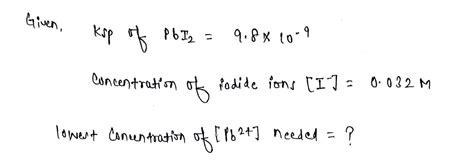 Given,
Ksp of PbI₂ = 9.8 × 10⁻⁹
Concentration of iodide ions [I⁻] = 0.032 M
lowest Concentration of [Pb²⁺] needed = ?